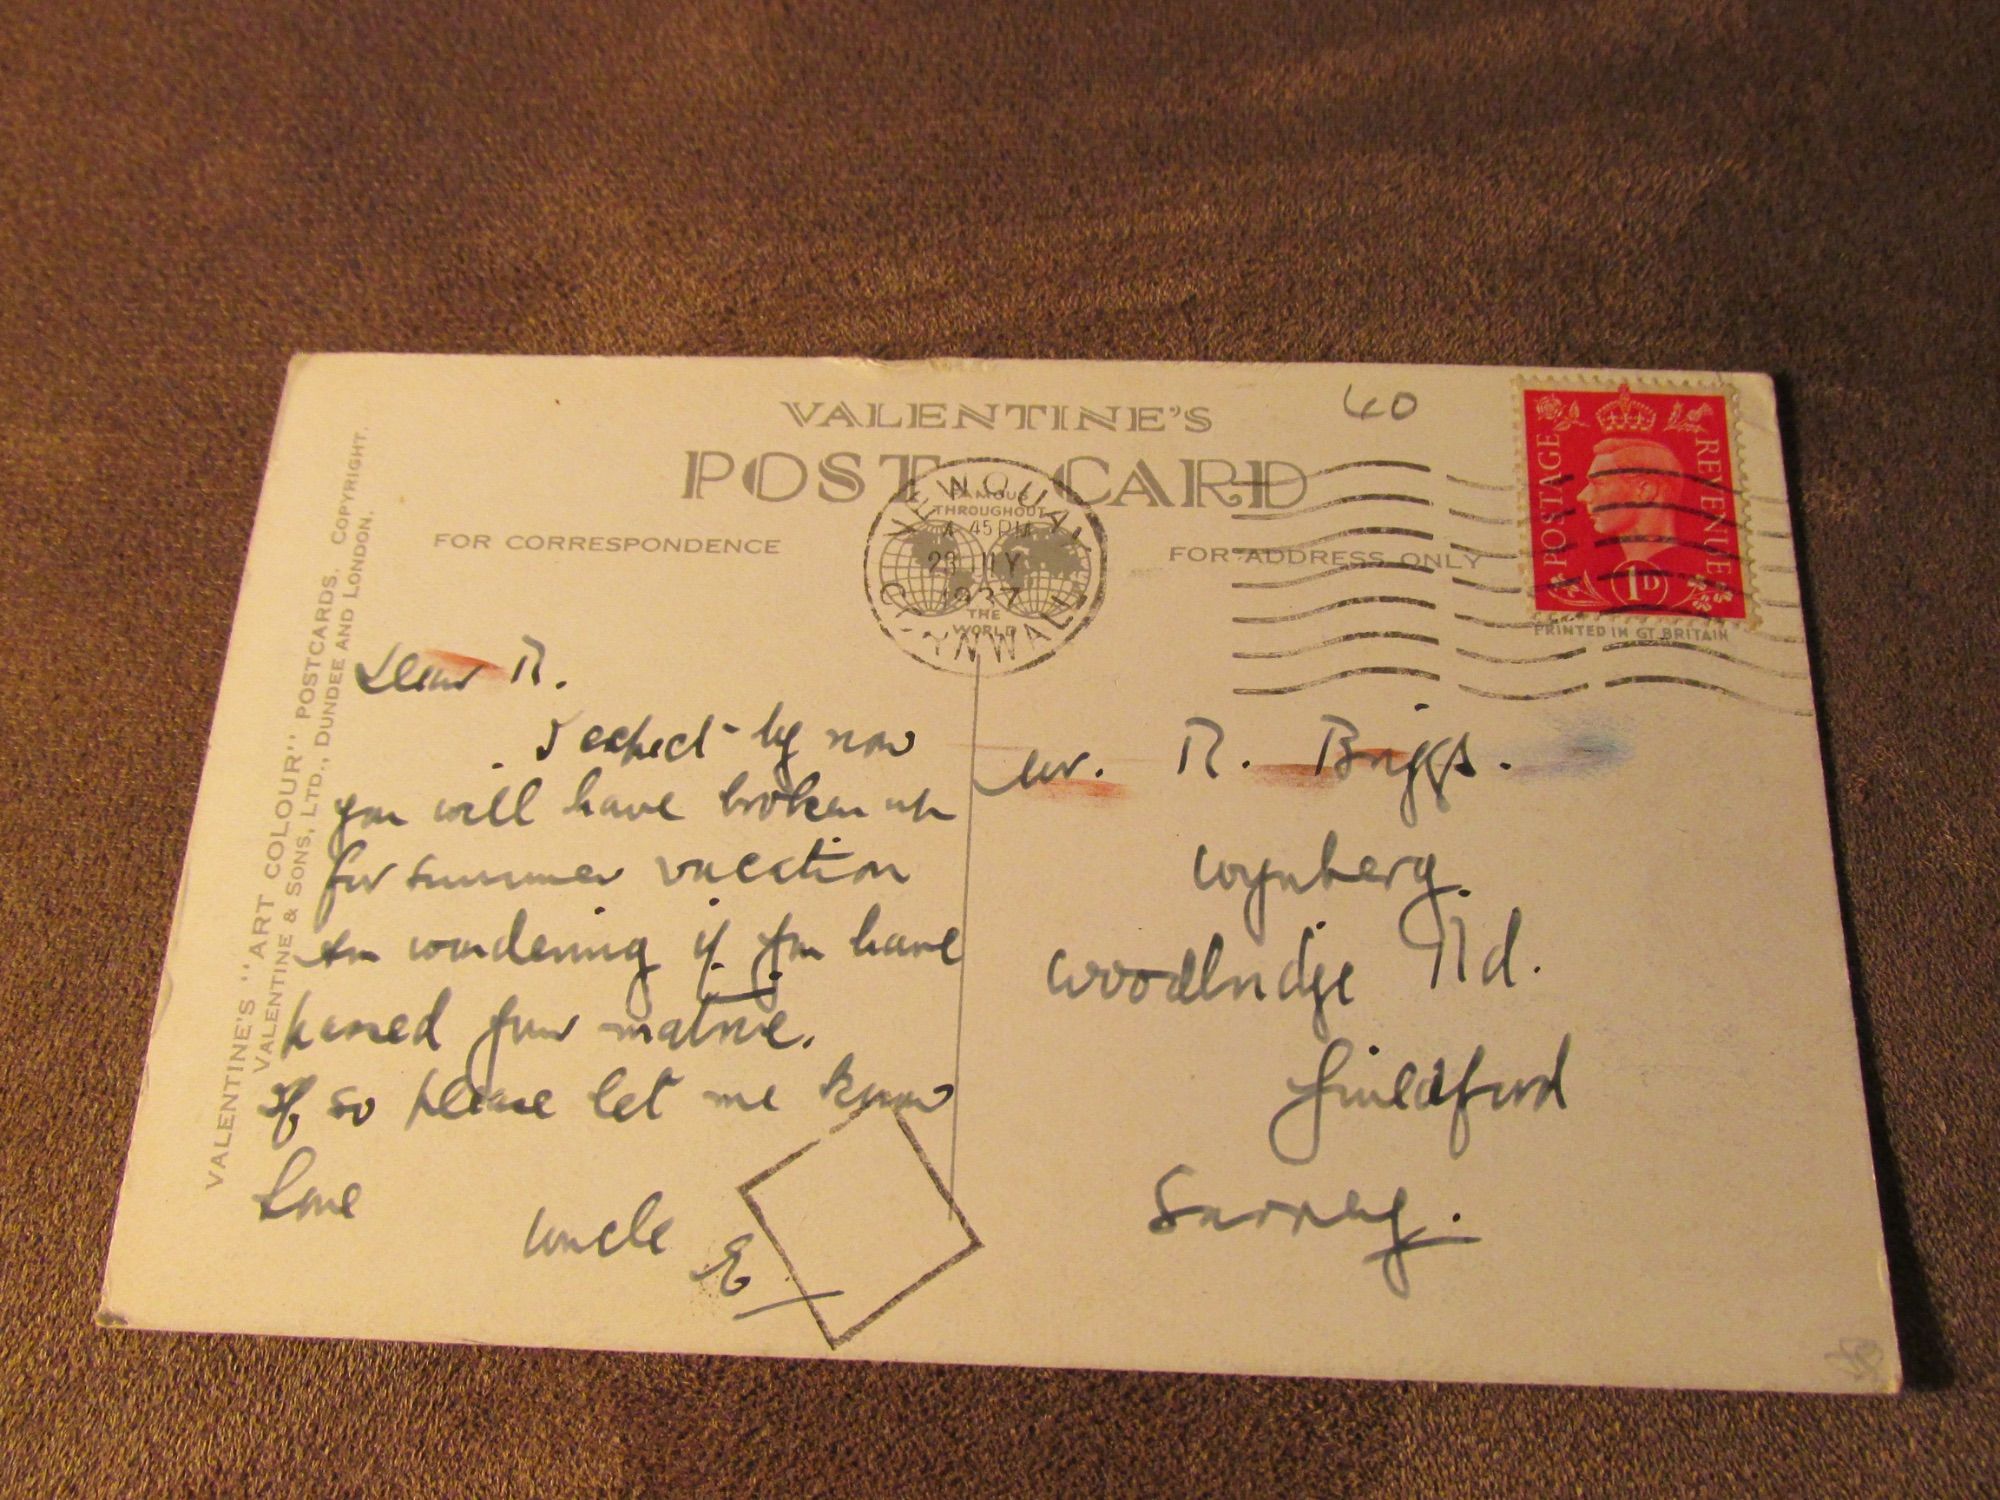 VALENTINE'S
POST CARD
60
FOR CORRESPONDENCE
FOR ADDRESS ONLY
NEWQUAY
CORNWALL
FAMOUS
THROUGHOUT
THE
WORLD
4 45 PM
1937
POSTAGE
REVENUE
1D
PRINTED IN GT. BRITAIN
VALENTINE'S "ART COLOUR" POSTCARDS. COPYRIGHT.
VALENTINE & SONS, LTD., DUNDEE AND LONDON.
Dear R.
I expect by now
you will have broken up
for summer vacation
am wondering if you have
passed your matric.
If so please let me know
Love
Uncle
E
Mr. R. Briggs.
Wynberg.
Woodbridge Rd.
Guildford
Surrey.